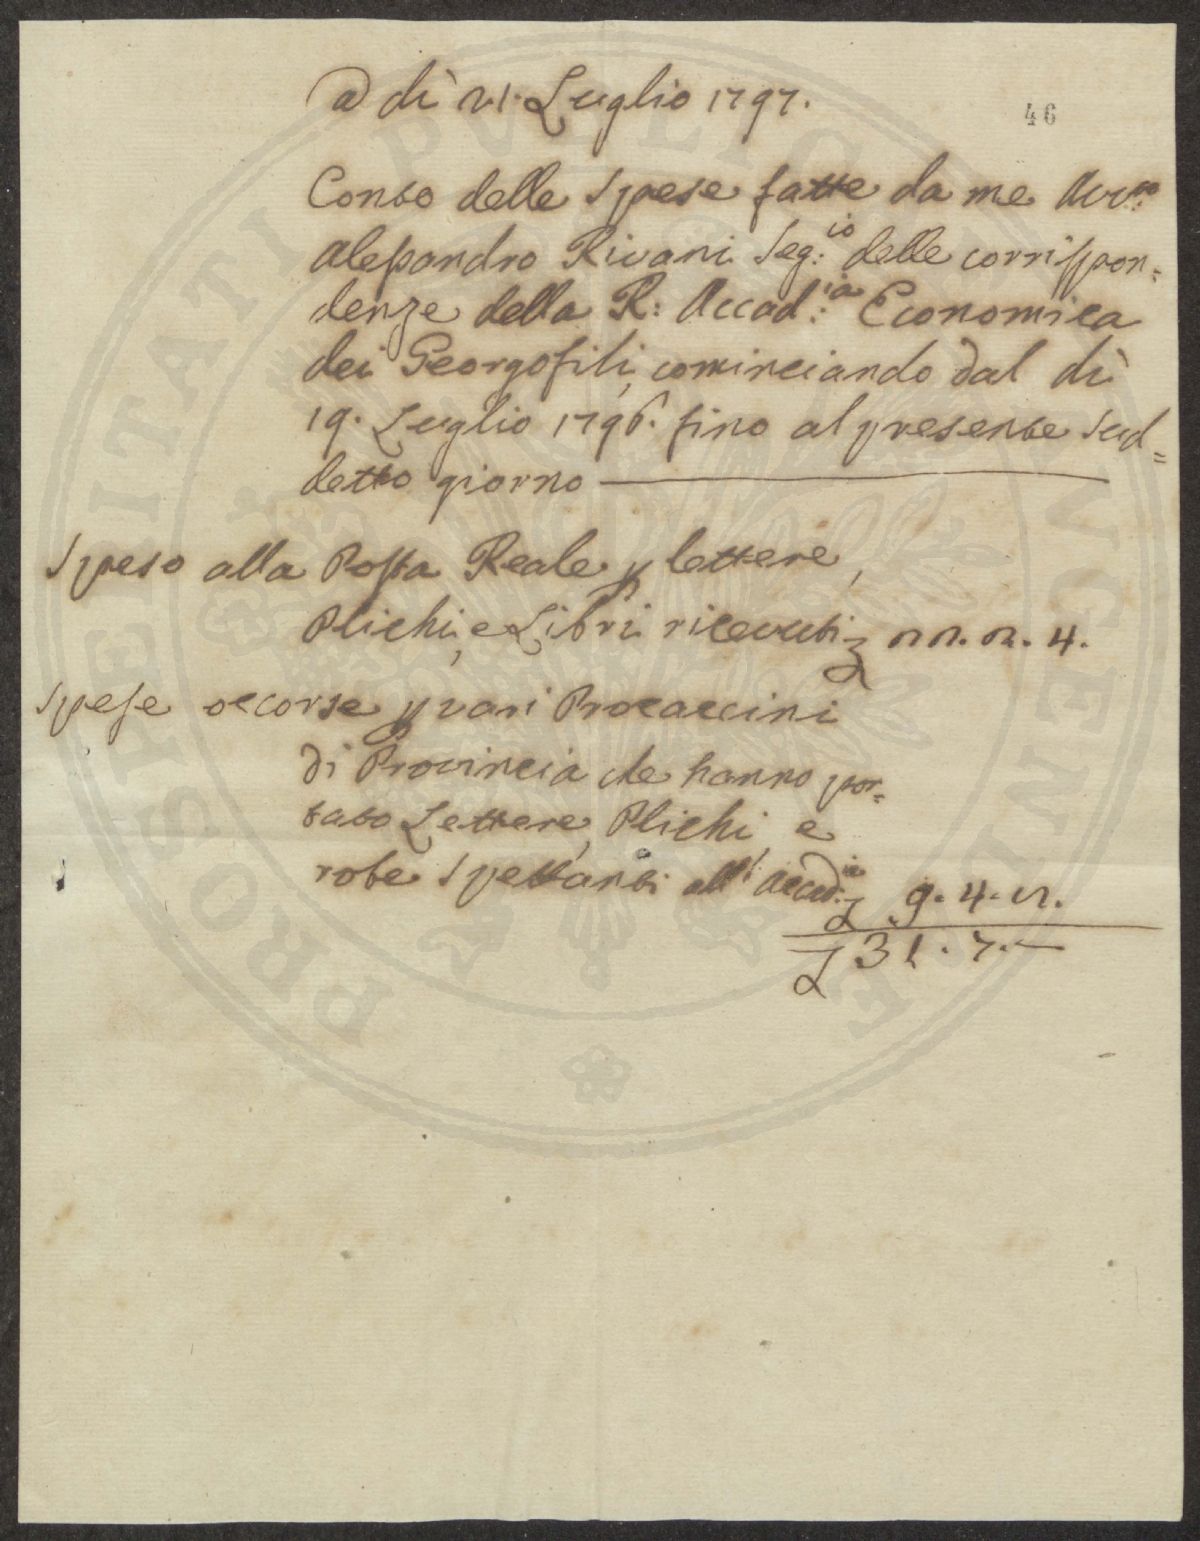 a dì 21. Luglio 1797.
46
Conto delle Spese fatte da me Avv.to
Alessandro Rivani Seg.:io delle corrispon=
denze della R: Accad.:ia Economica
dei Georgofili, cominciando dal dì
19. Luglio 1796. fino al presente sud=
detto giorno
Speso alla Posta Reale p lettere,
Plichi, e Libri ricevuti £ 22. 2. 4.
Spese occorse p vari Procaccini
di Provincia che hanno por=
tato Lettere, Plichi, e
robe spettanti all' Accad:ia £ 9. 4. 8.
£ 31. 7. —
PROSPERITATI PUBLICAE AUGENDAE